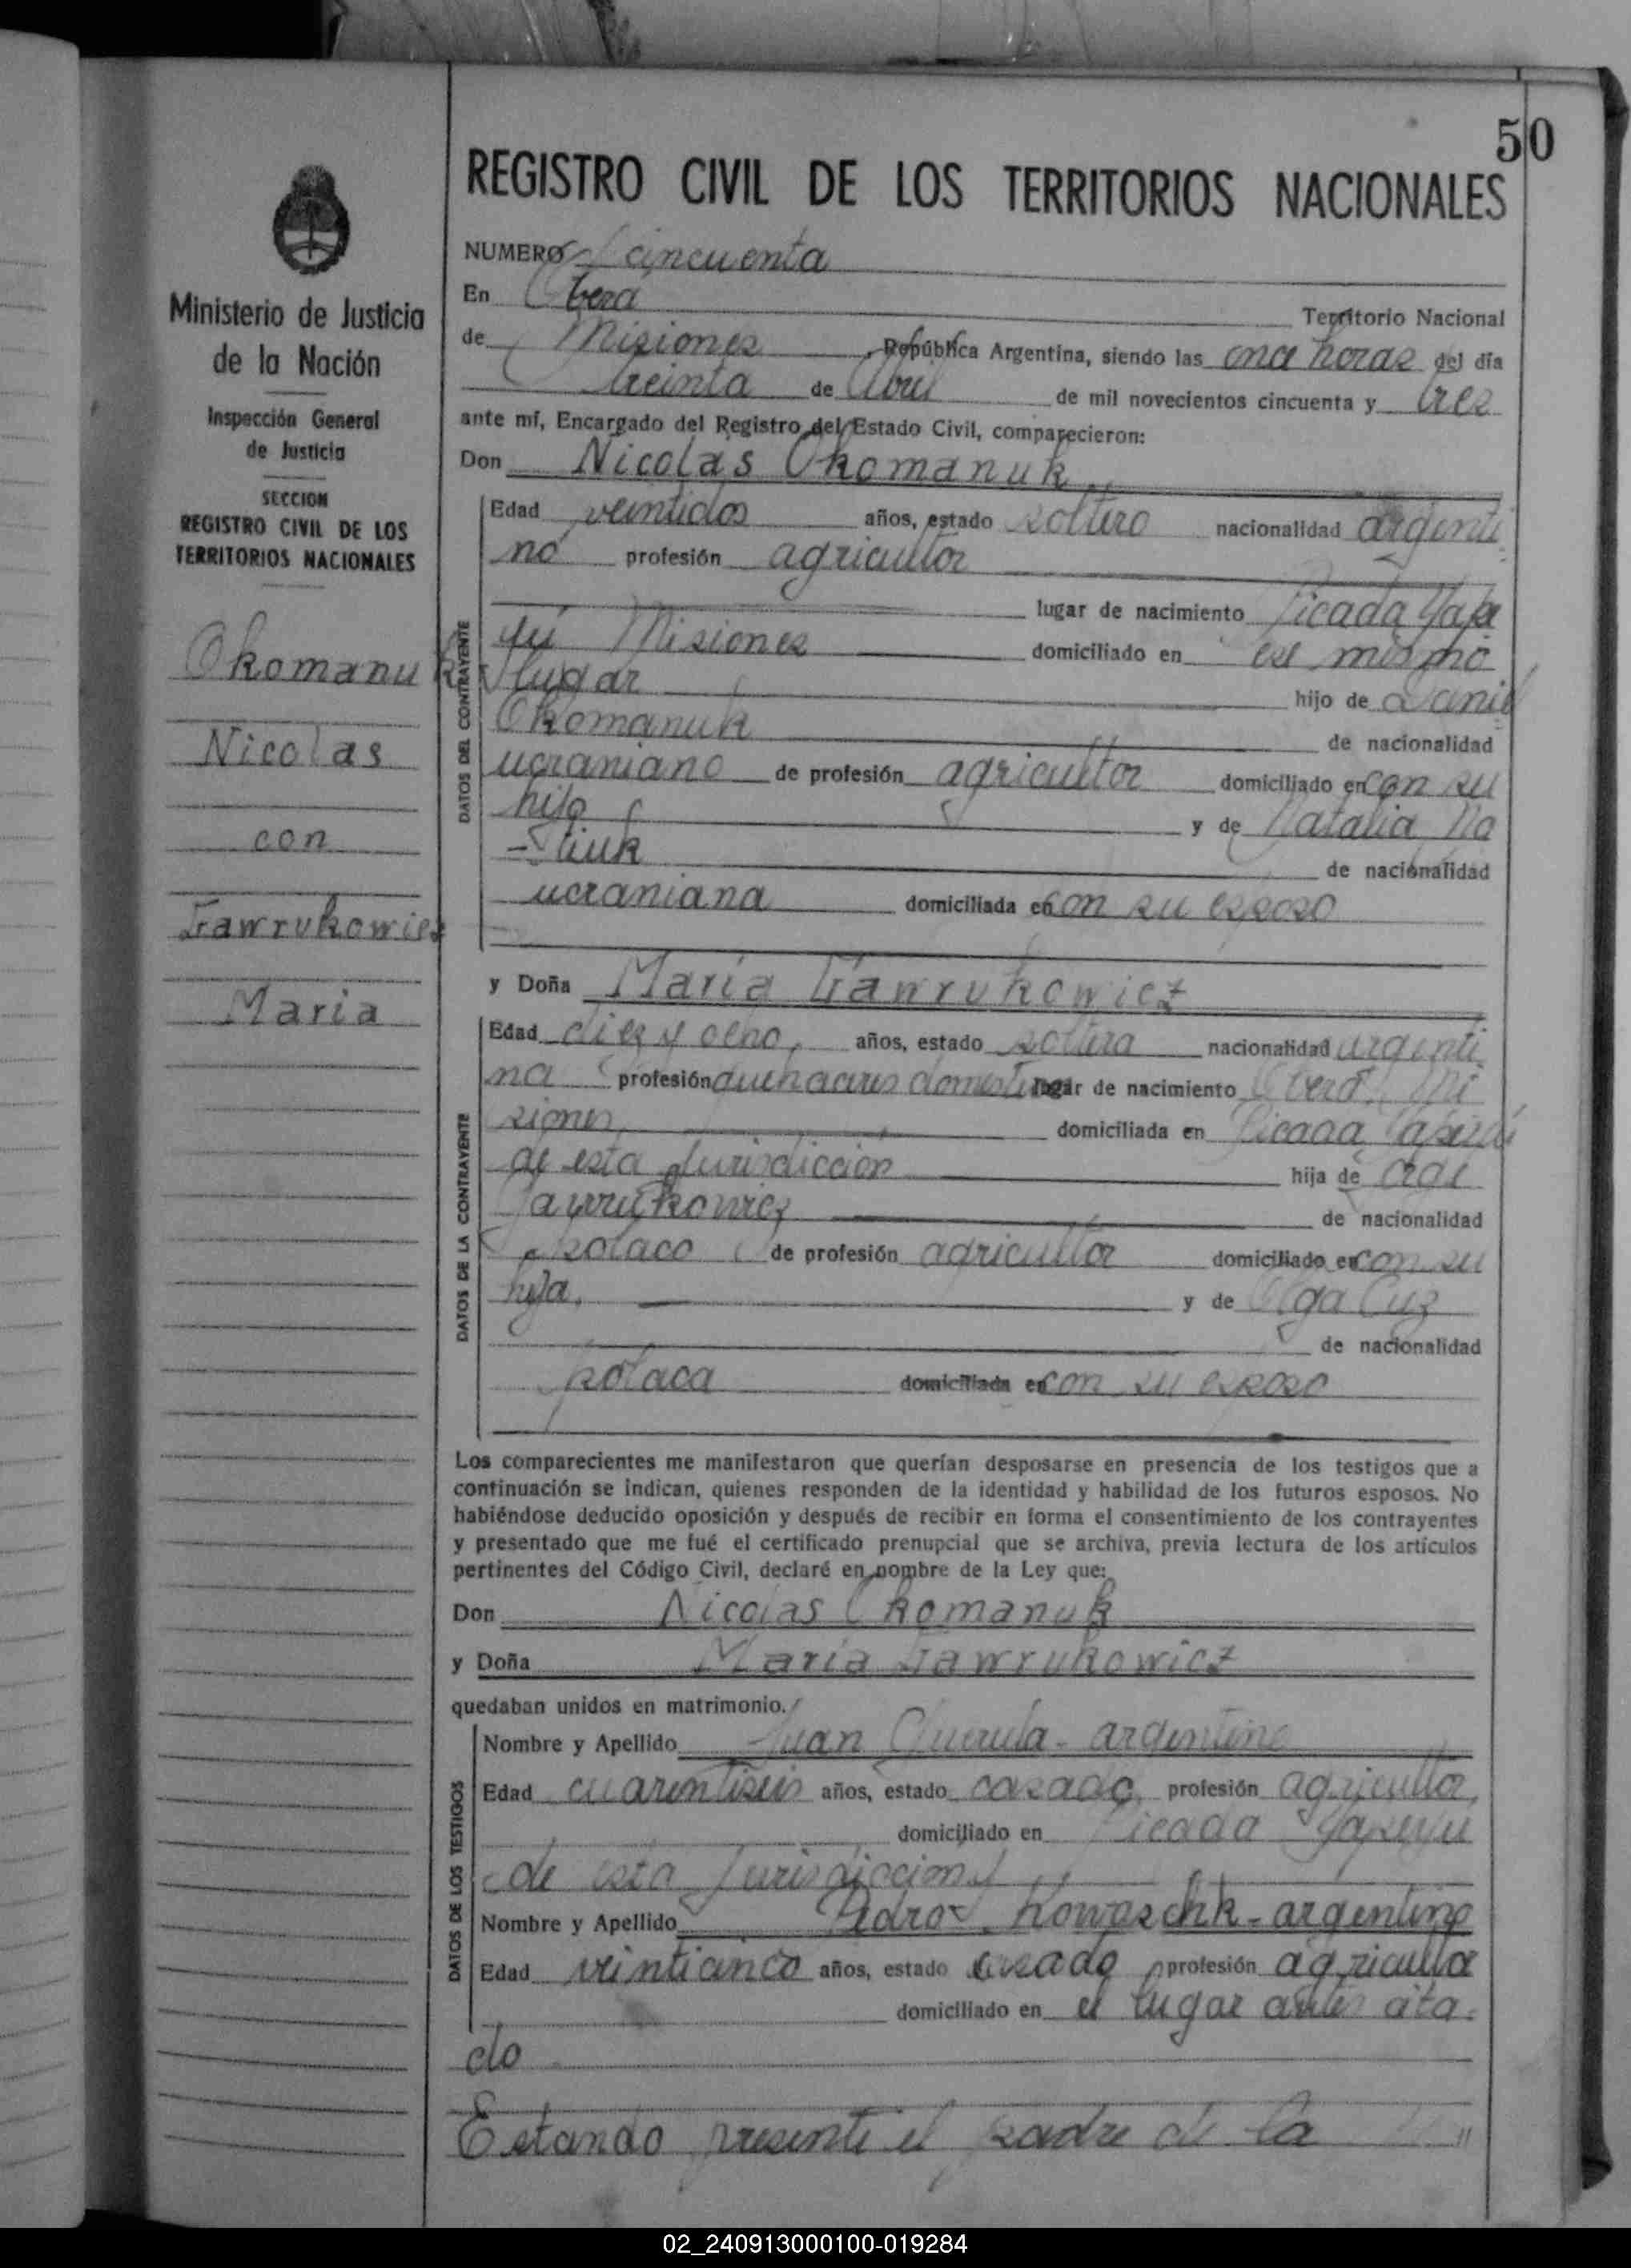 50
REGISTRO CIVIL DE LOS TERRITORIOS NACIONALES
Ministerio de Justicia
de la Nación
Inspección General
de Justicia
SECCION
REGISTRO CIVIL DE LOS
TERRITORIOS NACIONALES
Okomanuk
Nicolas
con
Gawrukowicz
Maria
NUMERO cincuenta
En Oberá
Territorio Nacional
de Misiones, República Argentina, siendo las once horas del día
treinta de Abril de mil novecientos cincuenta y tres
ante mí, Encargado del Registro del Estado Civil, comparecieron:
Don Nicolas Okomanuk
DATOS DEL CONTRAYENTE
Edad veintidos años, estado soltero nacionalidad argenti
no profesión agricultor
lugar de nacimiento Picada Yape
yú Misiones domiciliado en ese mismo
lugar hijo de Daniel
Okomanuk de nacionalidad
ucraniano de profesión agricultor domiciliado en con su
hijo y de Natalia
de nacionalidad
ucraniana domiciliada en con su esposo
y Doña Maria Gawrukowicz
DATOS DE LA CONTRAYENTE
Edad diez y ocho, años, estado soltera nacionalidad argenti
na profesión quehaceres domesticos lugar de nacimiento Oberá, Mi
siones domiciliada en Picada Yapeyú
de esta Jurisdicción hija de
Gawrukowicz de nacionalidad
polaco de profesión agricultor domiciliado en con su
hija. y de Olga Cuz
de nacionalidad
polaca domiciliada en con su esposo
Los comparecientes me manifestaron que querían desposarse en presencia de los testigos que a
continuación se indican, quienes responden de la identidad y habilidad de los futuros esposos. No
habiéndose deducido oposición y después de recibir en forma el consentimiento de los contrayentes
y presentado que me fué el certificado prenupcial que se archiva, previa lectura de los artículos
pertinentes del Código Civil, declaré en nombre de la Ley que:
Don Nicolas Okomanuk
y Doña Maria Gawrukowicz
quedaban unidos en matrimonio.
DATOS DE LOS TESTIGOS
Nombre y Apellido Juan argentino
Edad cuarentiseis años, estado casado, profesión agricultor,
domiciliado en Picada Yapeyú
de esta Jurisdiccion y
Nombre y Apellido Pedro Kowaschk - argentino
Edad veinticinco años, estado casado profesión agricultor
domiciliado en el lugar antes cita-
do
Estando presente el padre de la
02_240913000100-019284